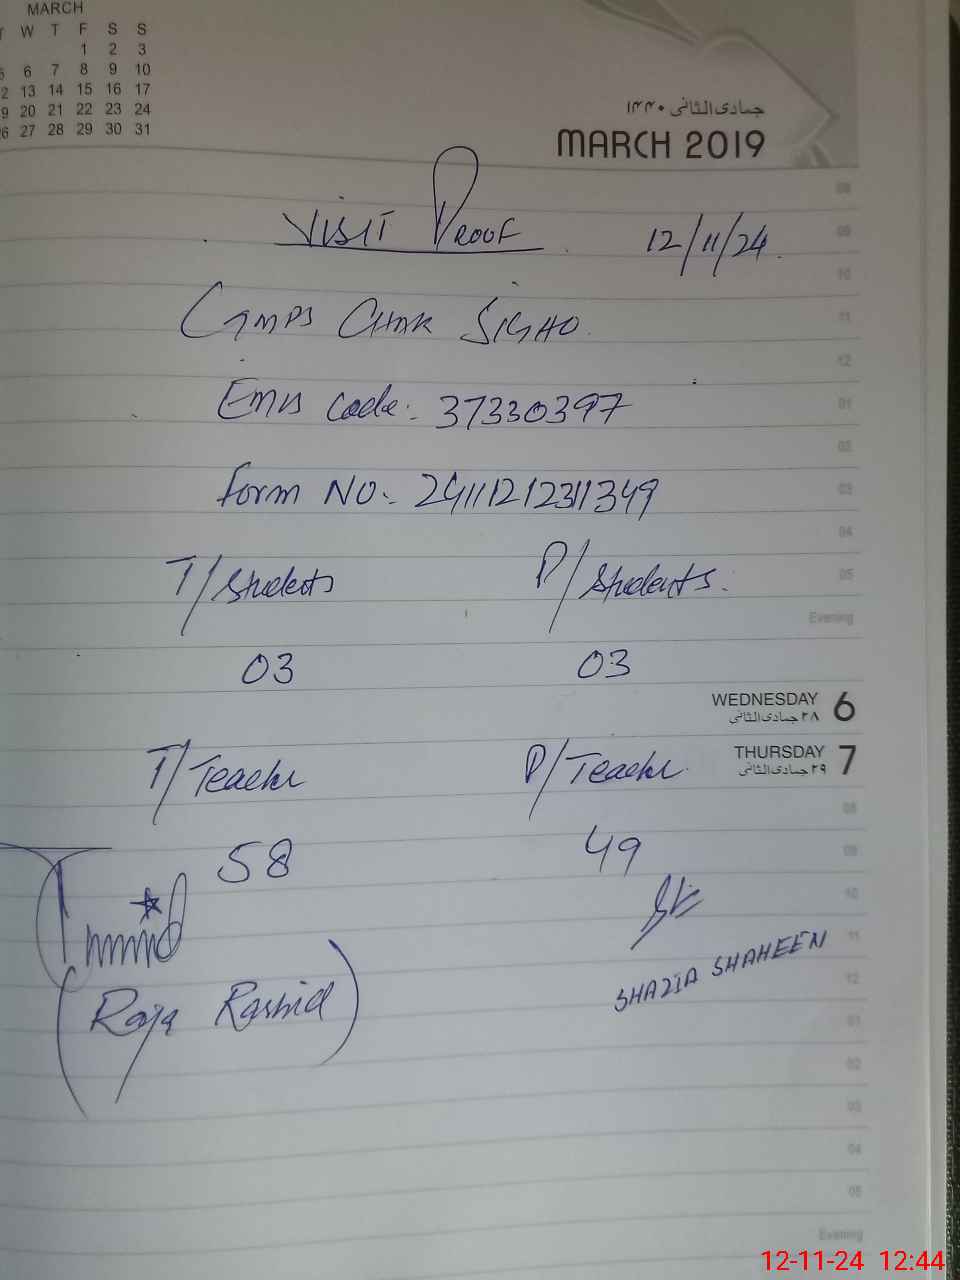 MARCH
W T F S S
1 2 3
6 7 8 9 10
13 14 15 16 17
20 21 22 23 24
27 28 29 30 31
جمادى الثانى ۱۴۴۰
MARCH 2019
VISIT PROOF 12/11/24
GMPS CHAK SIGHO.
EMIS code:- 37330397
Form NO:- 24111212311349
T/Students P/Students.
03 03
WEDNESDAY 6
۲۸ جمادى الثانى
THURSDAY 7
۲۹ جمادى الثانى
T/Teacher P/Teacher
58 49
(Raja Rashid)
SHAZIA SHAHEEN
08
09
10
11
12
01
02
03
04
05
Evening
08
09
10
11
12
01
02
03
04
05
Evening
12-11-24 12:44